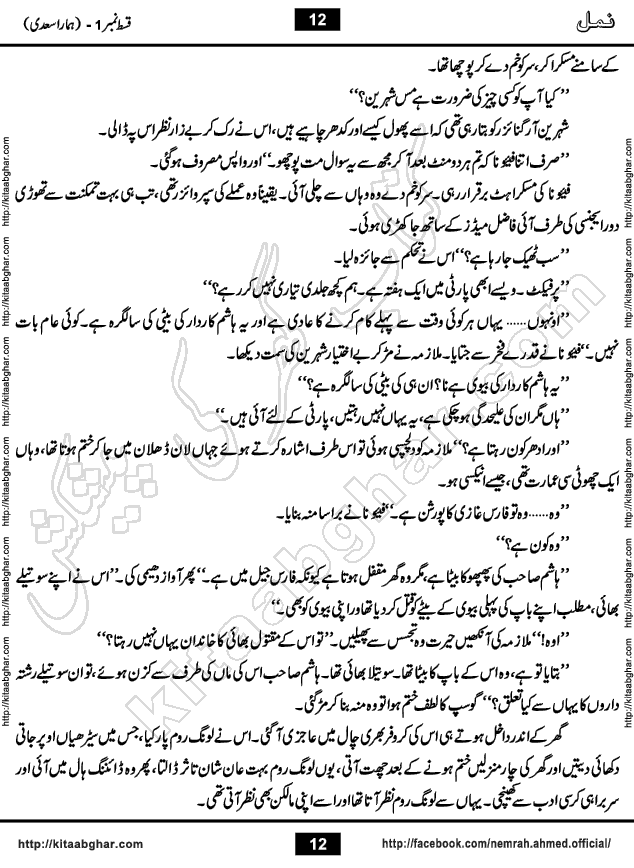 نمل
12
قسط نمبر 1 - (ہمارا سعدی)
کے سامنے مسکرا کر، سر کو خم دے کر پوچھا تھا۔
’’کیا آپ کو کسی چیز کی ضرورت ہے مس شہرین؟‘‘
شہرین آرگنائزر کو بتا رہی تھی کہ اسے پھول کیسے اور کدھر چاہیے ہیں، اس نے رک کر بے زار نظر اس پہ ڈالی۔
’’صرف اتنا فیئونا کہ تم ہر دو منٹ بعد آ کر مجھ سے یہ سوال مت پوچھو۔‘‘ اور واپس مصروف ہو گئی۔
فیئونا کی مسکراہٹ برقرار رہی۔ سر کو خم دے کے وہ وہاں سے چلی آئی۔ یقیناً وہ عملے کی سپروائزر تھی، تب ہی بہت تمکنت سے تھوڑی
دور ایجنسی کی طرف آئی فاضل میڈز کے ساتھ جا کھڑی ہوئی۔
’’سب ٹھیک جا رہا ہے؟‘‘ اس نے تحکم سے جائزہ لیا۔
’’پرفیکٹ۔ ویسے ابھی پارٹی میں ایک ہفتہ ہے۔ ہم کچھ جلدی تیاری نہیں کر رہے؟‘‘
’’اونہوں...... یہاں ہر کوئی وقت سے پہلے کام کرنے کا عادی ہے اور یہ ہاشم کاردار کی بیٹی کی سالگرہ ہے۔ کوئی عام بات
نہیں۔‘‘ فیئونا نے قدرے فخر سے جتایا۔ ملازمہ نے مڑ کر بے اختیار شہرین کی سمت دیکھا۔
’’یہ ہاشم کاردار کی بیوی ہے نا؟ ان ہی کی بیٹی کی سالگرہ ہے؟‘‘
’’ہاں مگر ان کی علیحدگی ہو چکی ہے، یہ یہاں نہیں رہتیں، پارٹی کے لئے آئی ہیں۔‘‘
’’اور ادھر کون رہتا ہے؟‘‘ ملازمہ کو دلچسپی ہوئی تو اس طرف اشارہ کرتے ہوئے جہاں لان ڈھلان میں جا کر ختم ہوتا تھا، وہاں
ایک چھوٹی سی عمارت تھی، جیسے انیکسی ہو۔
’’وہ...... وہ تو فارس غازی کا پورشن ہے۔‘‘ فیئونا نے برا سا منہ بنایا۔
’’وہ کون ہے؟‘‘
’’ہاشم صاحب کی پھپھو کا بیٹا ہے، مگر وہ گھر مقفل ہوتا ہے کیونکہ فارس جیل میں ہے۔‘‘ پھر آواز دھیمی کی۔ ’’اس نے اپنے سوتیلے
بھائی، مطلب اپنے باپ کی پہلی بیوی کے بیٹے کو قتل کر دیا تھا اور اپنی بیوی کو بھی۔‘‘
’’اوہ!‘‘ ملازمہ کی آنکھیں حیرت و تجسس سے پھیلیں۔ ’’تو اس کے مقتول بھائی کا خاندان یہاں نہیں رہتا؟‘‘
’’بتایا تو ہے، وہ اس کے باپ کا بیٹا تھا۔ سوتیلا بھائی تھا۔ ہاشم صاحب اس کی ماں کی طرف سے کزن ہوئے، تو ان سوتیلے رشتہ
داروں کا یہاں سے کیا تعلق؟‘‘ گوسپ کا لطف ختم ہوا تو وہ منہ بنا کر مڑ گئی۔
گھر کے اندر داخل ہوتے ہی اس کی کروفر بھری چال میں عاجزی آ گئی۔ اس نے لونگ روم پار کیا، جس میں سیڑھیاں اوپر جاتی
دکھائی دیتیں اور گھر کی چار منزلیں ختم ہونے کے بعد چھت آتی، یوں لونگ روم بہت عالی شان تاثر ڈالتا، پھر وہ ڈائننگ ہال میں آئی اور
سربراہی کرسی ادب سے کھینچی۔ یہاں سے لونگ روم نظر آتا تھا اور اسے اپنی مالکن بھی نظر آئی تھی۔
کتاب گھر کی پیشکش
kitaabghar.com
http://kitaabghar.com http://kitaabghar.com http://kitaabghar.com http://kitaabghar.com http://kitaabghar.com http://kitaabghar.com
http://kitaabghar.com http://kitaabghar.com http://kitaabghar.com http://kitaabghar.com http://kitaabghar.com http://kitaabghar.com
http://kitaabghar.com
12
http://facebook.com/nemrah.ahmed.official/